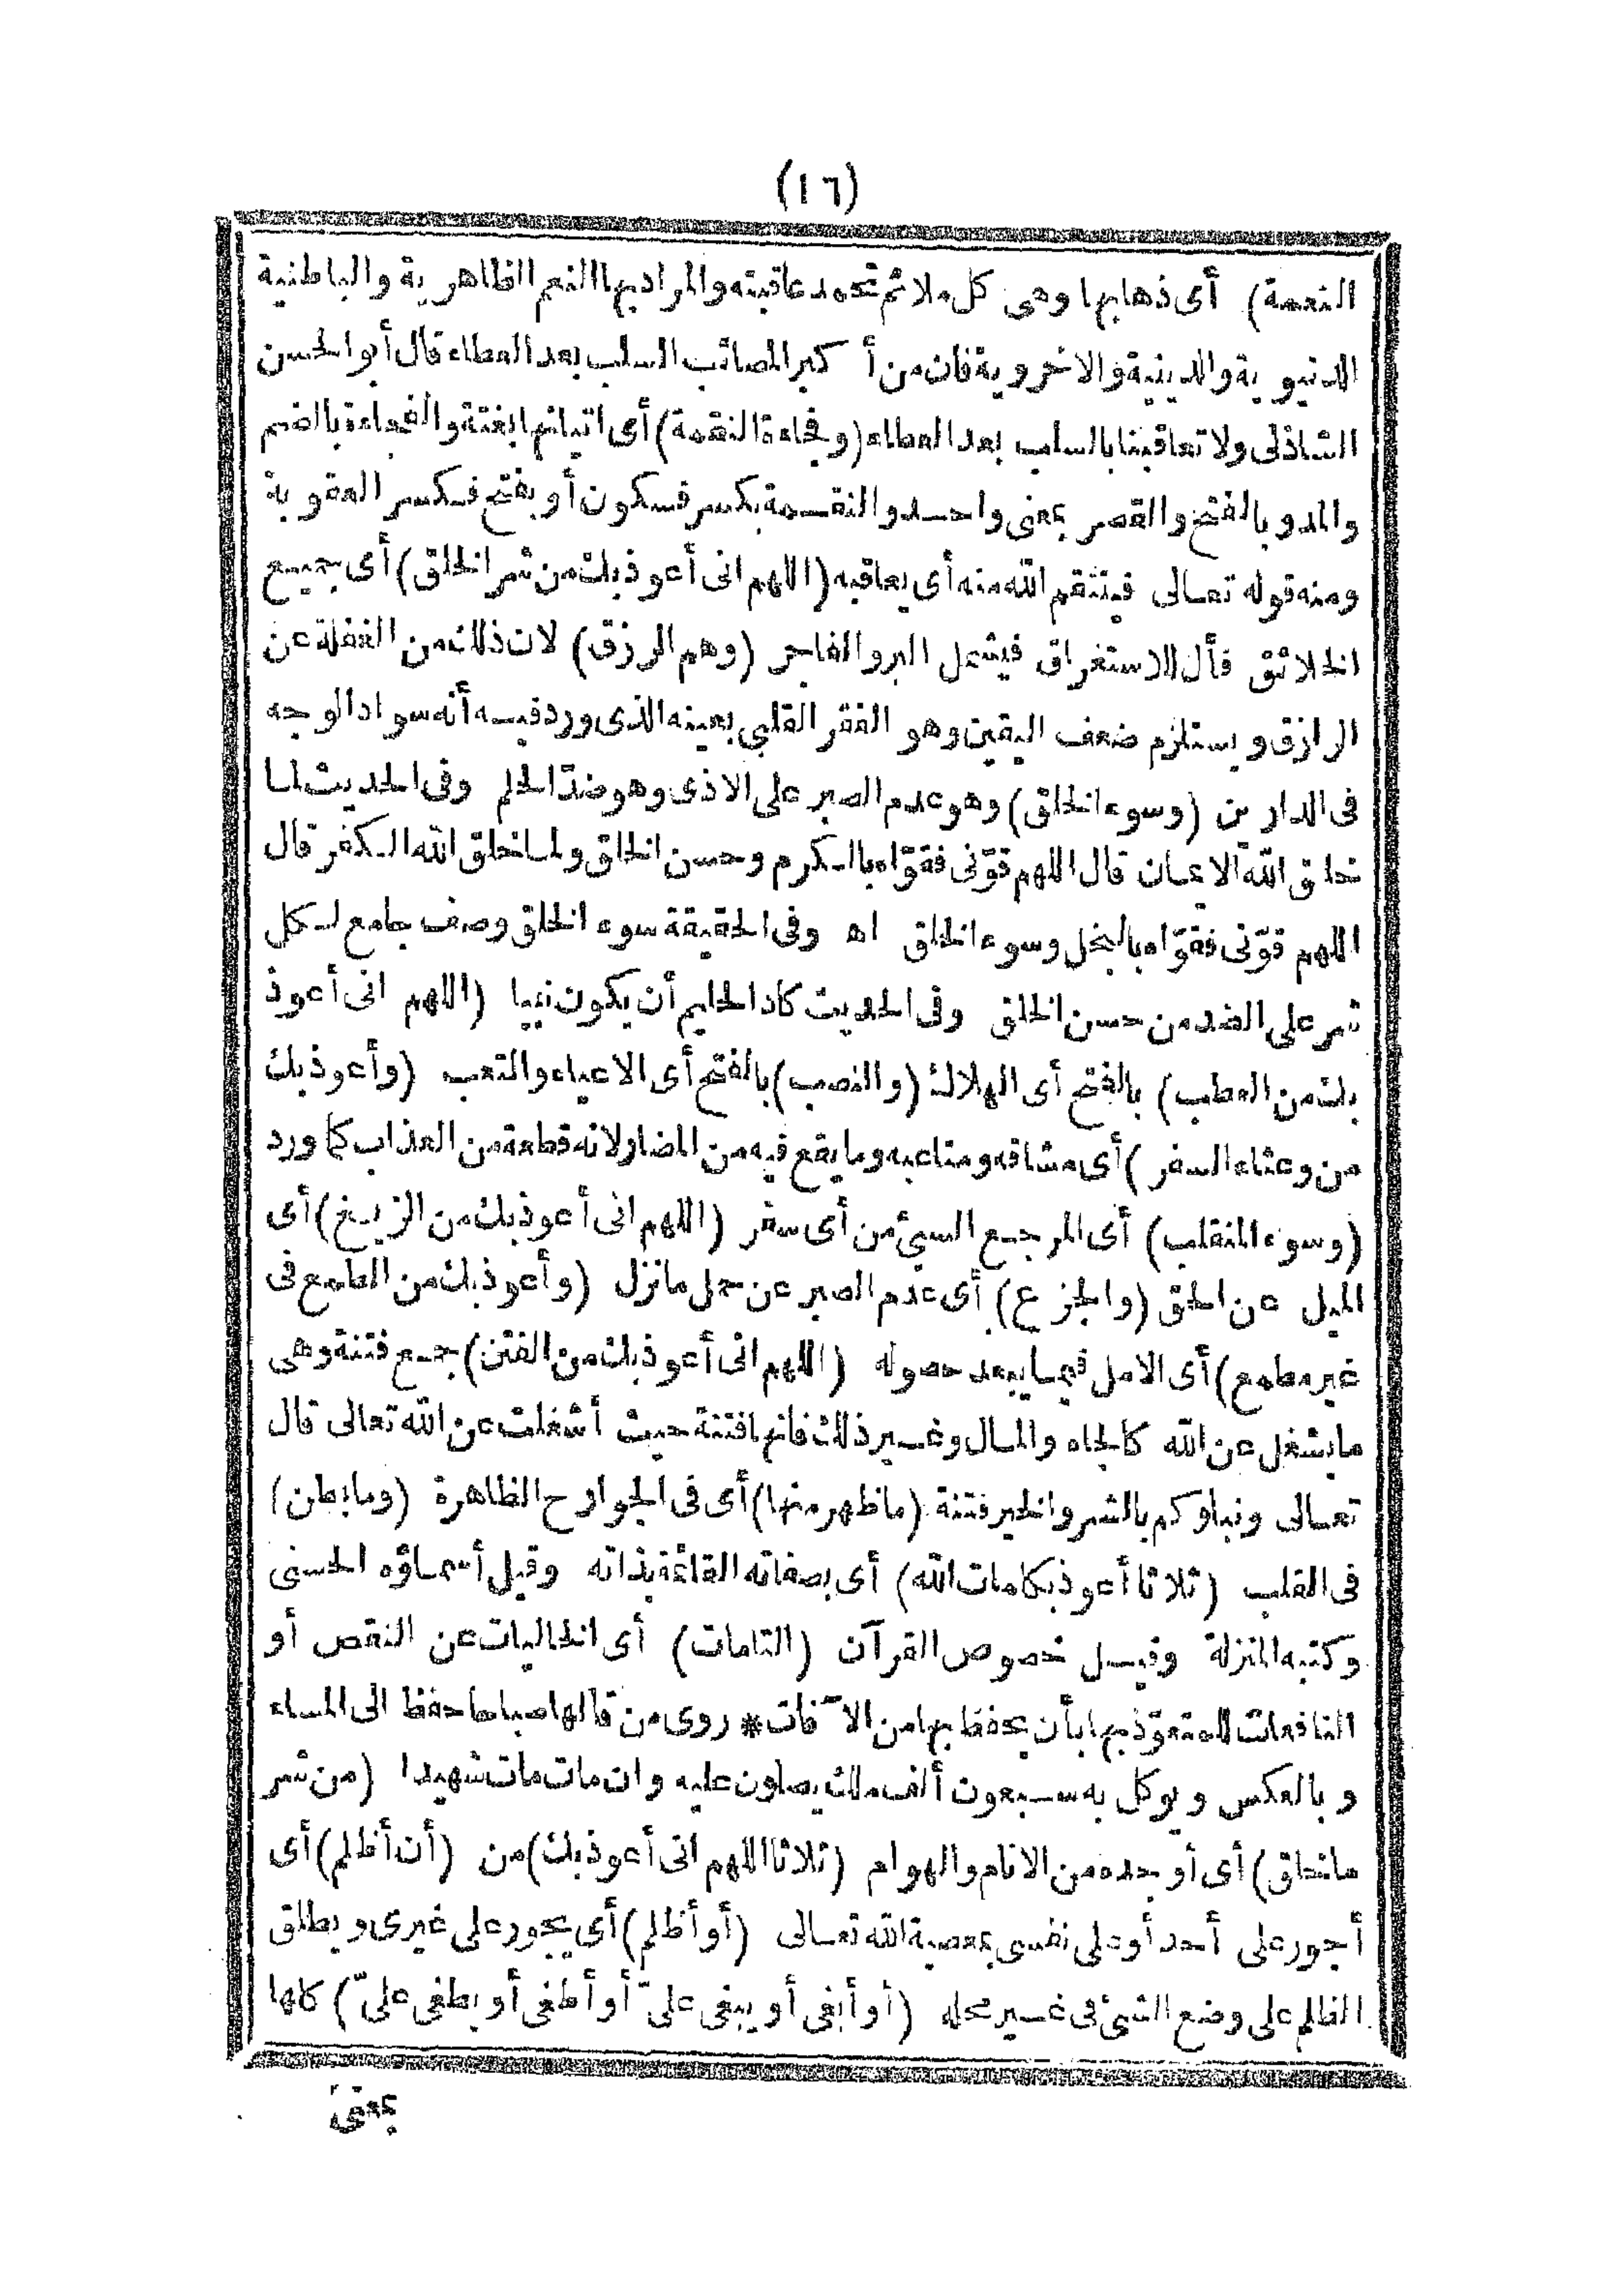 (١٦)
النعمة) أى ذهابها وهى كل ملائم تحمد عاقبته والمراد بها النعم الظاهرية والباطنية
الدنيوية والدينية والاخروية فان من أكبر المصائب السلب بعد العطاء قال أبو الحسن
الشاذلى ولا تعاقبنا بالسلب بعد العطاء (وفجاءة النقمة) أى اتيانها بغتة والفجاءة بالضم
والمد وبالفتح والقصر بمعنى واحد والنقمة بكسر فسكون أو بفتح فكسر العقوبة
ومنه قوله تعالى فينتقم الله منه أى يعاقبه (اللهم انى أعوذ بك من شر الخلق) أى جميع
الخلائق فأل للاستغراق فيشمل البر والفاجر (وهم الرزق) لان ذلك من الغفلة عن
الرازق ويستلزم ضعف اليقين وهو الفقر القلبى بعينه الذى ورد فيه أنه سواد الوجه
فى الدارين (وسوء الخلق) وهو عدم الصبر على الاذى وهو ضدّ الحلم وفى الحديث لما
خلق الله الايمان قال اللهم قوّنى فقوّاه بالكرم وحسن الخلق ولما خلق الله الكفر قال
اللهم قوّنى فقوّاه بالبخل وسوء الخلق اه وفى الحقيقة سوء الخلق وصف جامع لكل
شر على الضد من حسن الخلق وفى الحديث كاد الحليم أن يكون نبيا (اللهم انى أعوذ
بك من العطب) بالفتح أى الهلاك (والنصب) بالفتح أى الاعياء والتعب (وأعوذ بك
من وعثاء السفر) أى مشاقه ومتاعبه وما يقع فيه من المضار ولانه قطعة من العذاب كما ورد
(وسوء المنقلب) أى المرجع السيئ من أى سفر (اللهم انى أعوذ بك من الزيغ) أى
الميل عن الحق (والجزع) أى عدم الصبر عن حمل ما نزل (وأعوذ بك من الطمع فى
غير مطمع) أى الامل فيما يبعد حصوله (اللهم انى أعوذ بك من الفتن) جمع فتنة وهى
ما يشغل عن الله كالجاه والمال وغير ذلك فانها فتنة حيث أشغلت عن الله تعالى قال
تعالى ونبلوكم بالشر والخير فتنة (ما ظهر منها) أى فى الجوارح الظاهرة (وما بطن)
فى القلب (ثلاثا أعوذ بكلمات الله) أى بصفاته القائمة بذاته وقيل أسماؤه الحسنى
وكتبه المنزلة وقيل خصوص القرآن (التامات) أى الخاليات عن النقص أو
النافعات للمتعوّذ بها بأن يحفظ بها من الآفات * روى من قالها صباحا حفظ الى المساء
وبالعكس ويوكل به سبعون ألف ملك يصلون عليه وان مات مات شهيدا (من شر
ما خلق) أى أوجده من الانام والهوام (ثلاثا اللهم انى أعوذ بك) من (أن أظلم) أى
أجور على أحد أو على نفسى بمعصية الله تعالى (أو أظلم) أى يجور على غيرى ويطلق
الظلم على وضع الشئ فى غير محله (أو أبغى أو يبغى علىّ أو أطغى أو يطغى علىّ) كلها
بمعنى